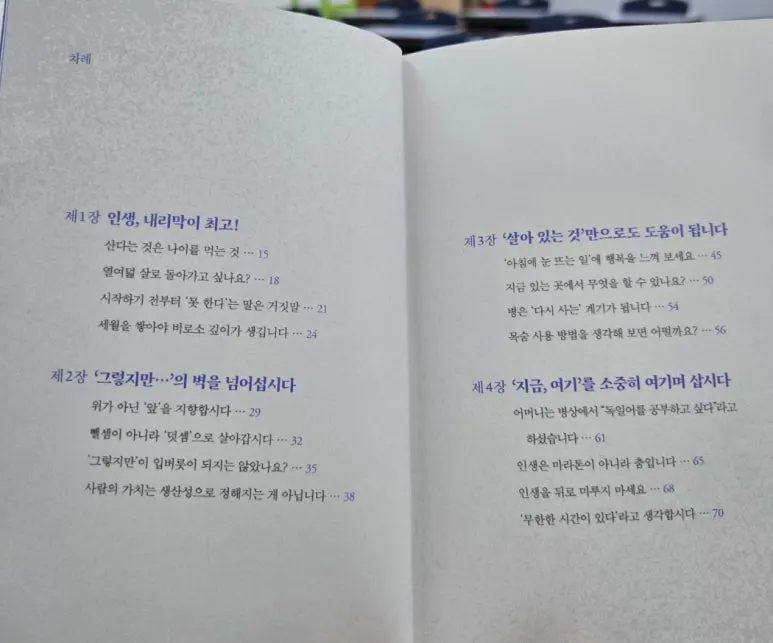 차례
제1장 인생, 내리막이 최고!
산다는 것은 나이를 먹는 것 … 15
열여덟 살로 돌아가고 싶나요? … 18
시작하기 전부터 '못 한다'는 말은 거짓말 … 21
세월을 쌓아야 비로소 깊이가 생깁니다 … 24
제2장 '그렇지만…'의 벽을 넘어섭시다
위가 아닌 '앞'을 지향합시다 … 29
뺄셈이 아니라 '덧셈'으로 살아갑시다 … 32
'그렇지만'이 입버릇이 되지는 않았나요? … 35
사람의 가치는 생산성으로 정해지는 게 아닙니다 … 38
제3장 '살아 있는 것'만으로도 도움이 됩니다
'아침에 눈 뜨는 일'에 행복을 느껴 보세요 … 45
지금 있는 곳에서 무엇을 할 수 있나요? … 50
병은 '다시 사는' 계기가 됩니다 … 54
목숨 사용 방법을 생각해 보면 어떨까요? … 56
제4장 '지금, 여기'를 소중히 여기며 삽시다
어머니는 병상에서 "독일어를 공부하고 싶다"라고
하셨습니다 … 61
인생은 마라톤이 아니라 춤입니다 … 65
인생을 뒤로 미루지 마세요 … 68
'무한한 시간이 있다'라고 생각합시다 … 70